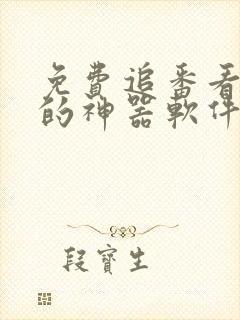 免費追番看
的神器軟件
段寶生